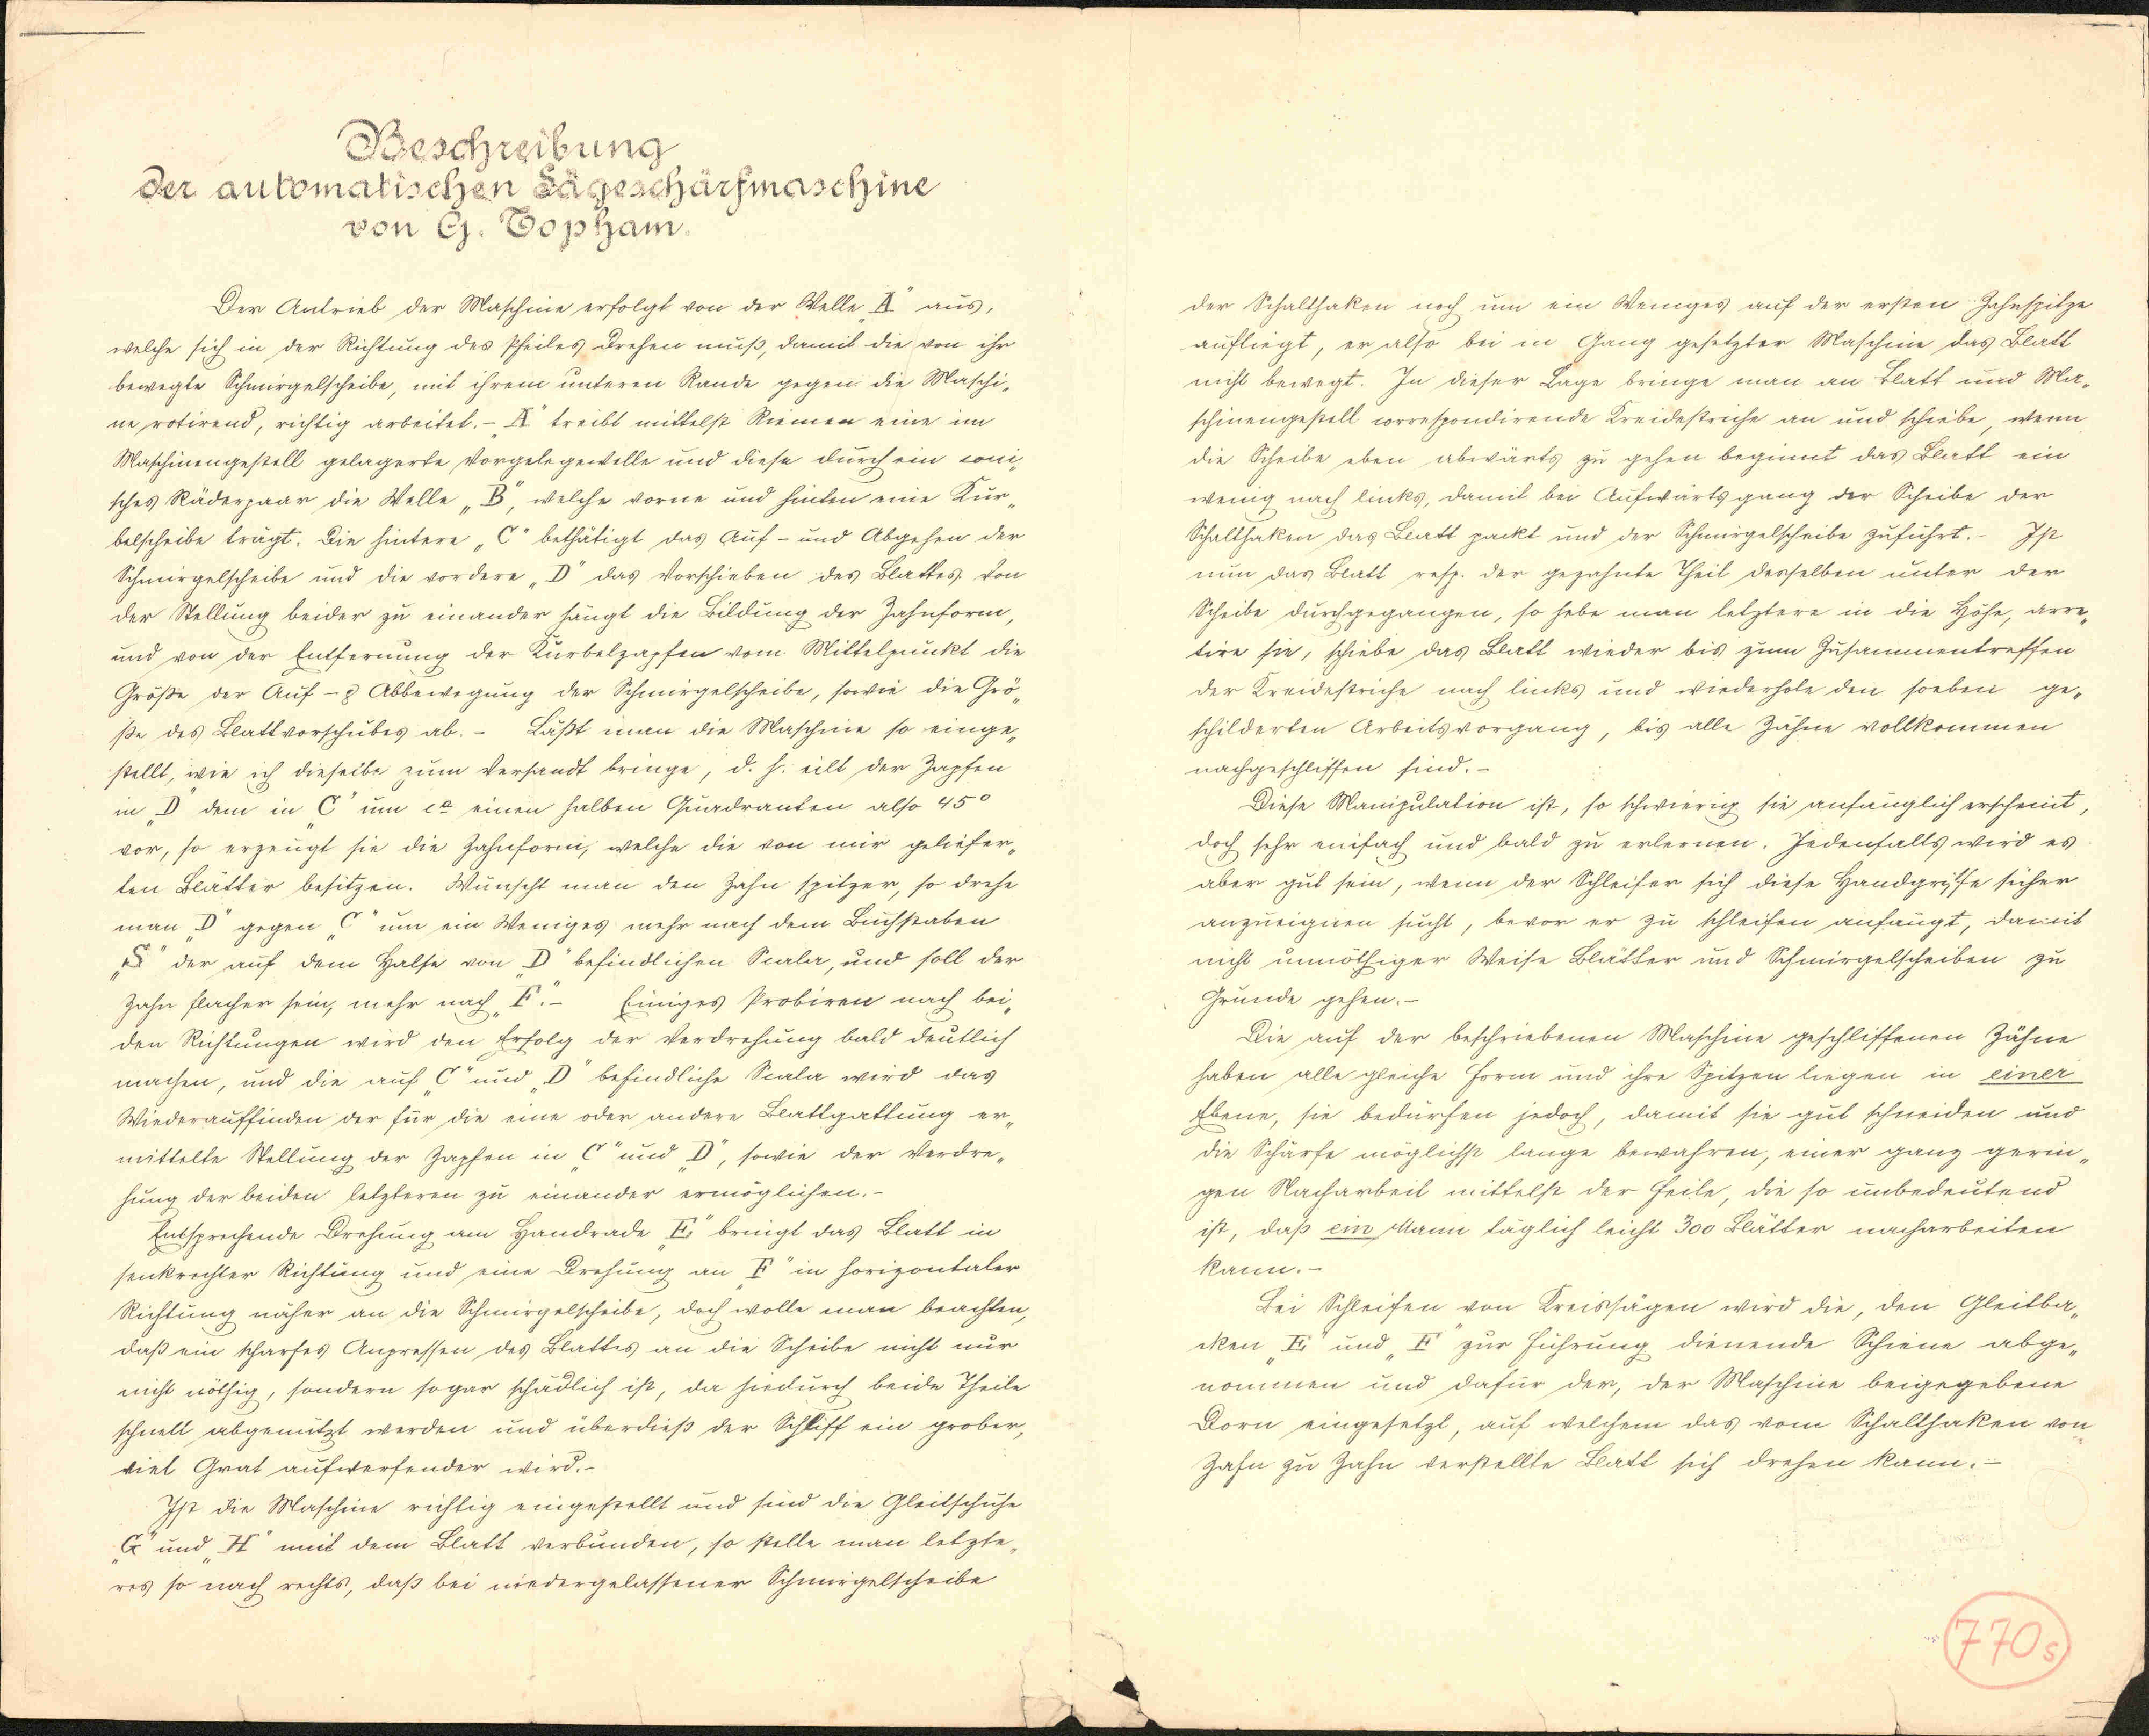 Beschreibung
der automatischen Sägeschärfmaschine
von G. Topham.
Der Antrieb der Maschine erfolgt von der Welle „A“ aus,
welche sich in der Richtung des Pfeiles drehen muß, damit die von ihr
bewegte Schmirgelscheibe, mit ihrem unteren Rande gegen die Maschi„
ne rotirend, richtig arbeitet. – „A“ treibt mittelst Riemen eine im
Maschinengestell gelagerte Vorgelegewelle und diese durch ein coni„
sches Räderpaar die Welle „B“, welche vorne und hinten eine Kur„
belscheibe trägt. Die hintere „C“ bethätigt das Auf- und Abgehen der
Schmirgelscheibe und die vordere „D“ das Vorschieben des Blattes. Von
der Stellung beider zu einander hängt die Bildung der Zahnform,
und von der Entfernung der Kurbelzapfen vom Mittelpunkt die
Größe der Auf- & Abbewegung der Schmirgelscheibe, sowie die Grö„
ße des Blattvorschubes ab. – Läßt man die Maschine so einge„
stellt, wie ich dieselbe zum Versandt bringe, d. h. eilt der Zapfen
in „D“ dem in „C“ um ca einen halben Quadranten also 45°
vor, so erzeugt sie die Zahnform, welche die von mir geliefer„
ten Blätter besitzen. Wünscht man den Zahn spitzer, so drehe
man „D“ gegen „C“ um ein Weniges mehr nach dem Buchstaben
„S“ der auf dem Halse von „D“ befindlichen Scala, und soll der
Zahn flacher sein, mehr nach „F“. – Einiges Probiren nach bei„
den Richtungen wird den Erfolg der Verdrehung bald deutlich
machen, und die auf „C“ und „D“ befindliche Scala wird das
Wiederauffinden der für die eine oder andere Blattgattung er„
mittelte Stellung der Zapfen in „C“ und „D“, sowie der Verdre„
hung der beiden letzteren zu einander ermöglichen. –
Entsprechende Drehung am Handrade „E“ bringt das Blatt in
senkrechter Richtung und eine Drehung an „F“ in horizontaler
Richtung näher an die Schmirgelscheibe, doch wolle man beachten,
daß ein scharfes Anpressen des Blattes an die Scheibe nicht nur
nicht nöthig, sondern sogar schädlich ist, da hiedurch beide Theile
schnell abgenützt werden und überdieß der Schliff ein grober,
viel Grat aufwerfender wird. –
Ist die Maschine richtig eingestellt und sind die Gleitschuhe
„G“ und „H“ mit dem Blatt verbunden, so stelle man letzte„
res so nach rechts, daß bei niedergelassener Schmirgelscheibe
der Schalthaken noch um ein Weniges auf der ersten Zahnspitze
aufliegt, er also bei in Gang gesetzter Maschine das Blatt
nicht bewegt. In dieser Lage bringe man an Blatt und Ma„
schinengestell correspondirende Kreidestriche an und schiebe, wenn
die Scheibe eben abwärts zu gehen beginnt das Blatt ein
wenig nach links, damit bei Aufwärtsgang der Scheibe der
Schalthaken das Blatt packt und der Schmirgelscheibe zuführt. – Ist
nun das Blatt resp. der gezahnte Theil desselben unter der
Scheibe durchgegangen, so hebe man letztere in die Höhe, arre„
tire sie, schiebe das Blatt wieder bis zum Zusammentreffen
der Kreidestriche nach links und wiederhole den soeben ge„
schilderten Arbeitsvorgang, bis alle Zähne vollkommen
nachgeschliffen sind. –
Diese Manipulation ist, so schwierig sie anfänglich erscheint,
doch sehr einfach und bald zu erlernen. Jedenfalls wird es
aber gut sein, wenn der Schleifer sich diese Handgriffe sicher
anzueignen sucht, bevor er zu schleifen anfängt, damit
nicht unnöthiger Weise Blätter und Schmirgelscheiben zu
Grunde gehen. –
Die auf der beschriebenen Maschine geschliffenen Zähne
haben alle gleiche Form und ihre Spitzen liegen in einer
Ebene, sie bedürfen jedoch, damit sie gut schneiden und
die Schärfe möglichst lange bewahren, einer ganz gerin„
gen Nacharbeit mittelst der Feile, die so unbedeutend
ist, daß ein Mann täglich leicht 300 Blätter nacharbeiten
kann. –
Bei Schleifen von Kreissägen wird die, den Gleitba„
cken „E“ und „F“ zur Führung dienende Schiene abge„
nommen und dafür der, der Maschine beigegebene
Dorn eingesetzt, auf welchem das vom Schalthaken von
Zahn zu Zahn verstellte Blatt sich drehen kann. –
770s